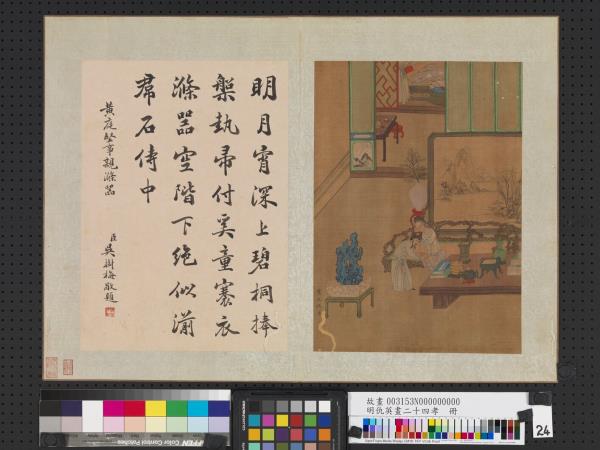 明月宵深上碧桐捧
槃執帚付奚童褰衣
滌器空階下絶似湔
帬石侍中
黃庭堅事親滌器
臣吳樹梅敬題
故畫 003153N000000000
明仇英畫二十四孝 冊
24
Color Control Patches